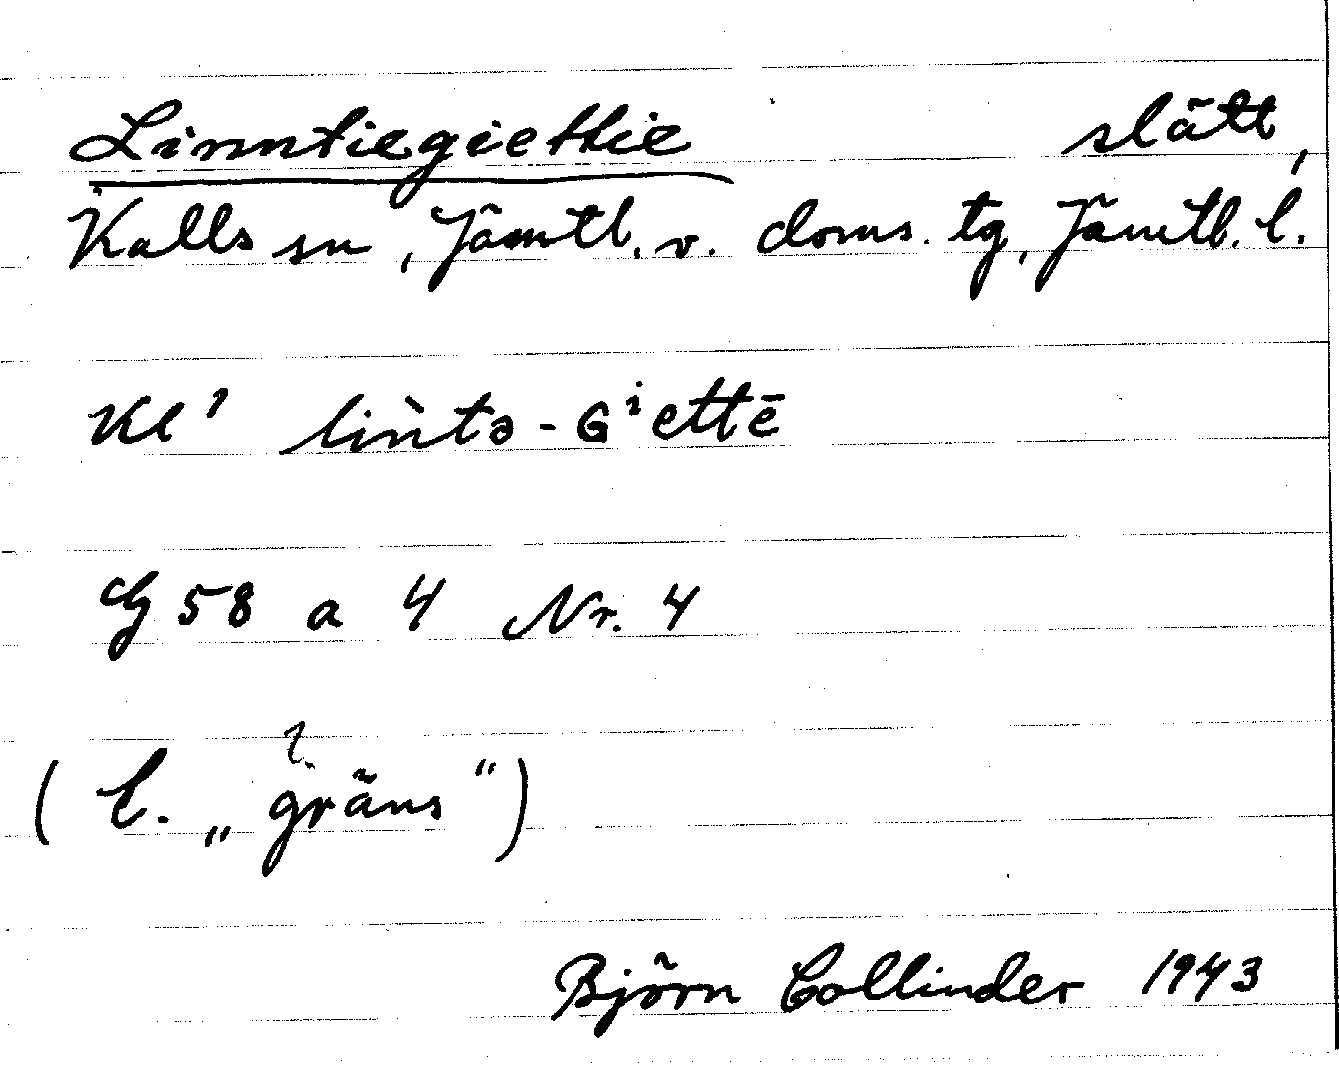 Linntiegiettie slått,
Kalls sn, Jämtl. v. doms. tg, Jämtl. l.
Kl' lìǹtə-Gⁱettē
G 58 a 4 Nr. 4
( l. „gräns“)
Björn Collinder 1943